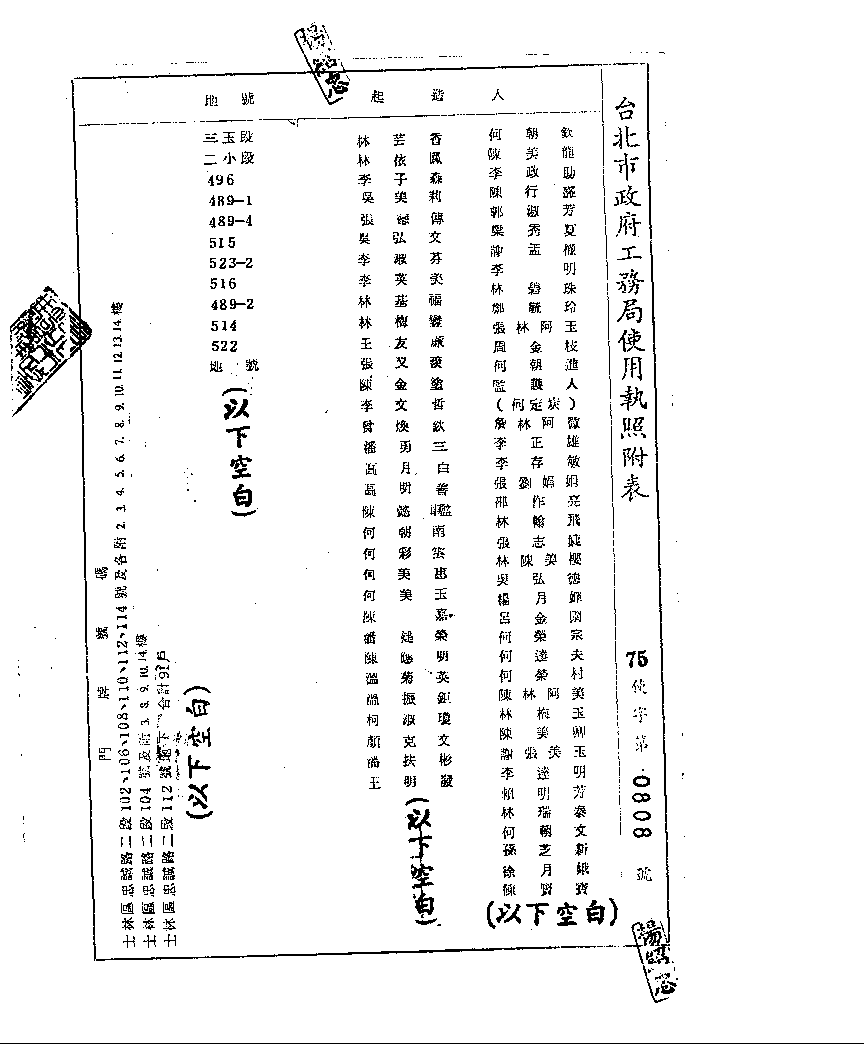 台北市政府工務局使用執照附表
75使字第0808號
起造人
何朝欽
陳美龍
李政助
陳行
郭淑芳
梁秀夏
謝孟
李明
林珠
鄭毓玲
張林阿玉
周金枝
何朝進
監護人
(何定宗)
詹林阿微
李正雄
李存敏
張劉娟娟
邵作亮
林翰飛
張志
林陳美櫻
吳弘德
楊月嬋
呂金閣
何榮宗
何達夫
何榮村
陳林阿美
林梅玉
陳美卿
謝張美玉
李達明
賴明芳
林瑞泰
何朝文
孫芝新
徐月娥
陳賢寶
(以下空白)
林芸香
林依鳳
李子森
吳美莉
張德傳
吳弘文
李淑芬
李英美
林基福
林梅
王友
張又
陳金塗
李文哲
曾煥欽
潘勇三
高月白
高明善
陳懿
何朝南
何彩雲
何美惠
何美玉
陳嘉
潘建榮
陳德明
溫菊英
溫振
柯淑瓊
顏克文
潘扶彬
王明發
(以下空白)
地號
三玉段
二小段
496
489-1
489-4
515
523-2
516
489-2
514
522
地號
(以下空白)
門牌號碼
士林區忠誠路二段102、106、108、110、112、114號及各附2.3.4.5.6.7.8.9.10.11.12.13.14樓
士林區忠誠路二段104號及附3.8.9.10.14樓
士林區忠誠路二段112號地下 合計91戶
(以下空白)
楊紹忠
楊紹忠